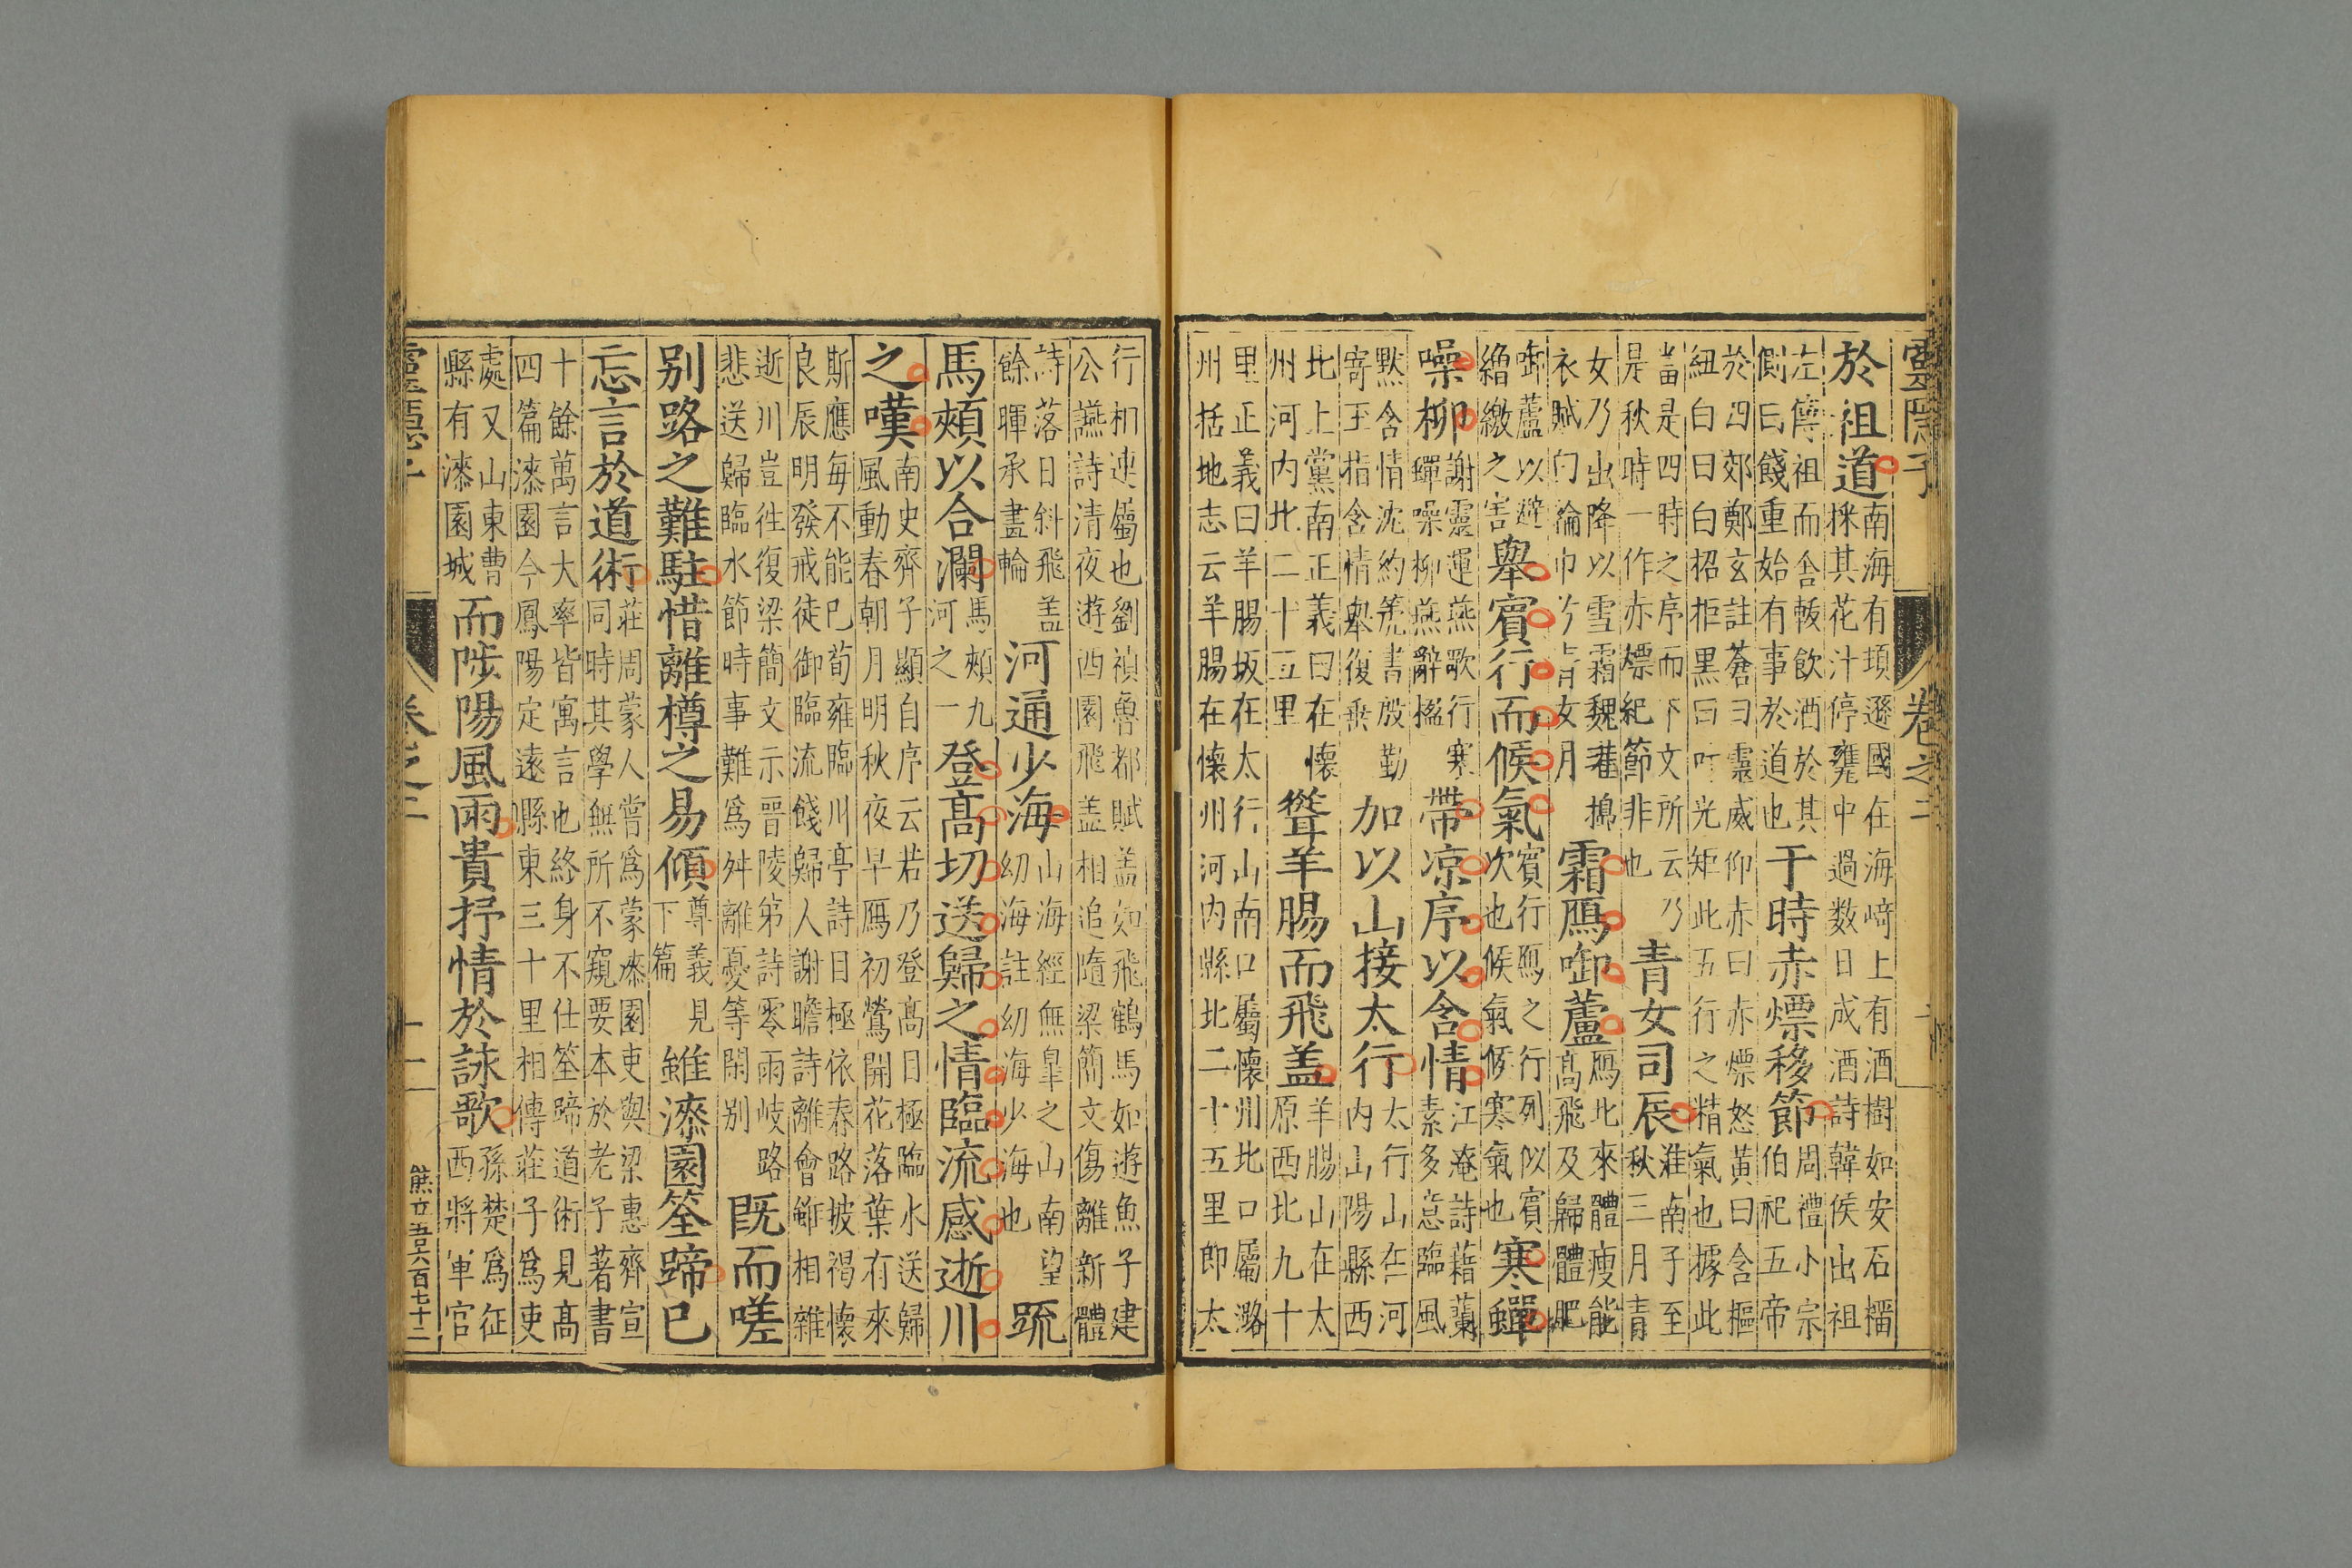 靈隱子　卷之二
於祖道南海有頊遜國在海﨑上有酒樹如安石橊採其花汁停甕中過数日成酒詩韓侯出祖
左傳祖而舎軷飲酒於其側曰餞重始有事於道也于時赤熛移節周禮小宗伯祀五帝
於四郊鄭玄註蒼曰靈威仰赤曰赤熛怒黃曰含樞紐白曰白招拒黑曰叶光矩此五行之精氣也據此
當是四時之序而下文所云乃是秋時一作赤熛紀節非也青女司辰淮南子至秋三月青
女乃出降以雪霜魏揔衣賦綸巾兮青女月霜鴈啣蘆鴈北來體瘦能高飛及歸體肥
啣蘆以避繒繳之害舉賓行而候氣賓行鴈之行列似賓次也候氣候寒氣也寒蟬
噪柳謝靈運燕歌行寒蟬噪柳燕辭楹帶凉序以含情江淹詩藉蘭素多意臨風
默含情沈約箎書殷勤寄玉指含情舉復垂加以山接太行太行山在河内山陽縣西
北上黨南正義曰在懷州河内北二十五里聳羊腸而飛盖羊腸山在太原西北九十
里正義曰羊腸坂在太行山南口屬懷州北口屬潞州括地志云羊腸在懷州河内縣北二十五里即太
行相連屬也劉禎魯都賦盖如飛鶴馬如遊魚子建公讌詩清夜遊西園飛盖相追隨梁簡文傷離新體
詩落日斜飛盖餘暉承畫輪河通少海山海經無皐之山南望幼海註幼海少海也䟽
馬頰以合瀾馬頰九河之一登髙切送歸之情臨流感逝川
之嘆南史齊子顯自序云若乃登髙日極臨水送歸風動春朝月明秋夜早鴈初鶯開花落葉有來
斯應毎不能已荀雍臨川亭詩日極依春路坡褐懷良辰明發戒徒御臨流餞歸人謝瞻詩離會雖相雜
逝川豈徃復梁簡文示晋陵弟詩零雨岐路悲送歸臨水節時事難爲舛離憂等閑别既而嗟
别路之難駐惜離樽之易傾尊義見下篇雖漆園筌蹄已
忘言於道術莊周蒙人嘗爲蒙漆園吏與梁惠齊宣同時其學無所不窺要本於老子著書
十餘萬言大率皆寓言也終身不仕筌蹄道術見髙四篇漆園今鳳陽定遠縣東三十里相傳莊子爲吏
處又山東曹縣有漆園城而陟陽風雨貴抒情於詠歌孫楚爲征西將軍官
靈隱子　卷之二　十一　熊立五百六百七十二